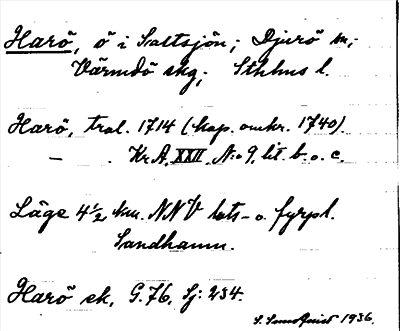 Harö, ö i Saltsjön; Djurö sn;
Värmdö skg; Sthlms l.
Harö, tral. 1714 (kop. omkr. 1740).
— . Kr.A. XXII. N:o 9, lit. b. o. c.
Läge 4½ km. NNV lots- o. fyrpl.
Sandhamn.
Harö ek, G. 76, Sj: 234.
S. Sundquist 1936.